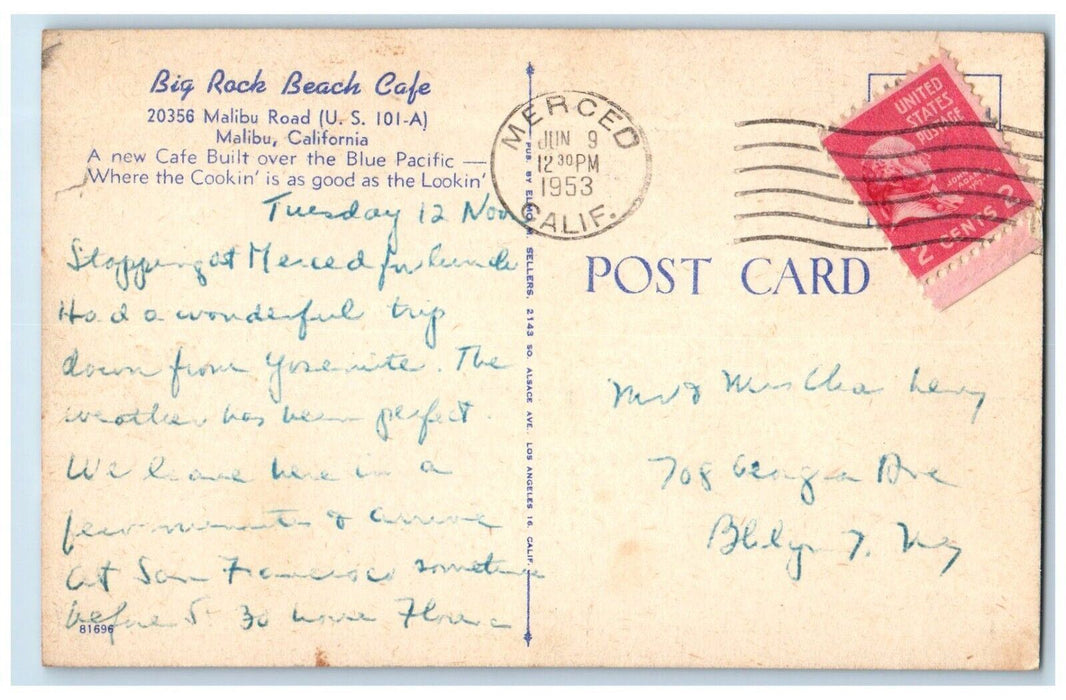 Big Rock Beach Cafe
20356 Malibu Road (U. S. 101-A)
Malibu, California
A new Cafe Built over the Blue Pacific —
Where the Cookin' is as good as the Lookin'
Tuesday 12 Noon
Stopping at Merced for lunch
Had a wonderful trip
down from Yosemite. The
weather has been perfect.
We leave here in a
few minutes & arrive
at San Francisco sometime
before 5-30
81696
PUB. BY ELMO M. SELLERS, 2143 SO. ALSACE AVE. LOS ANGELES 16, CALIF.
MERCED
JUN 9
12 30 PM
1953
CALIF.
UNITED
STATES
POSTAGE
JOHN ADAMS
2 CENTS 2
POST CARD
Mr & Mrs Chas Levy
708 Georgia Ave
Bklyn 7. NY